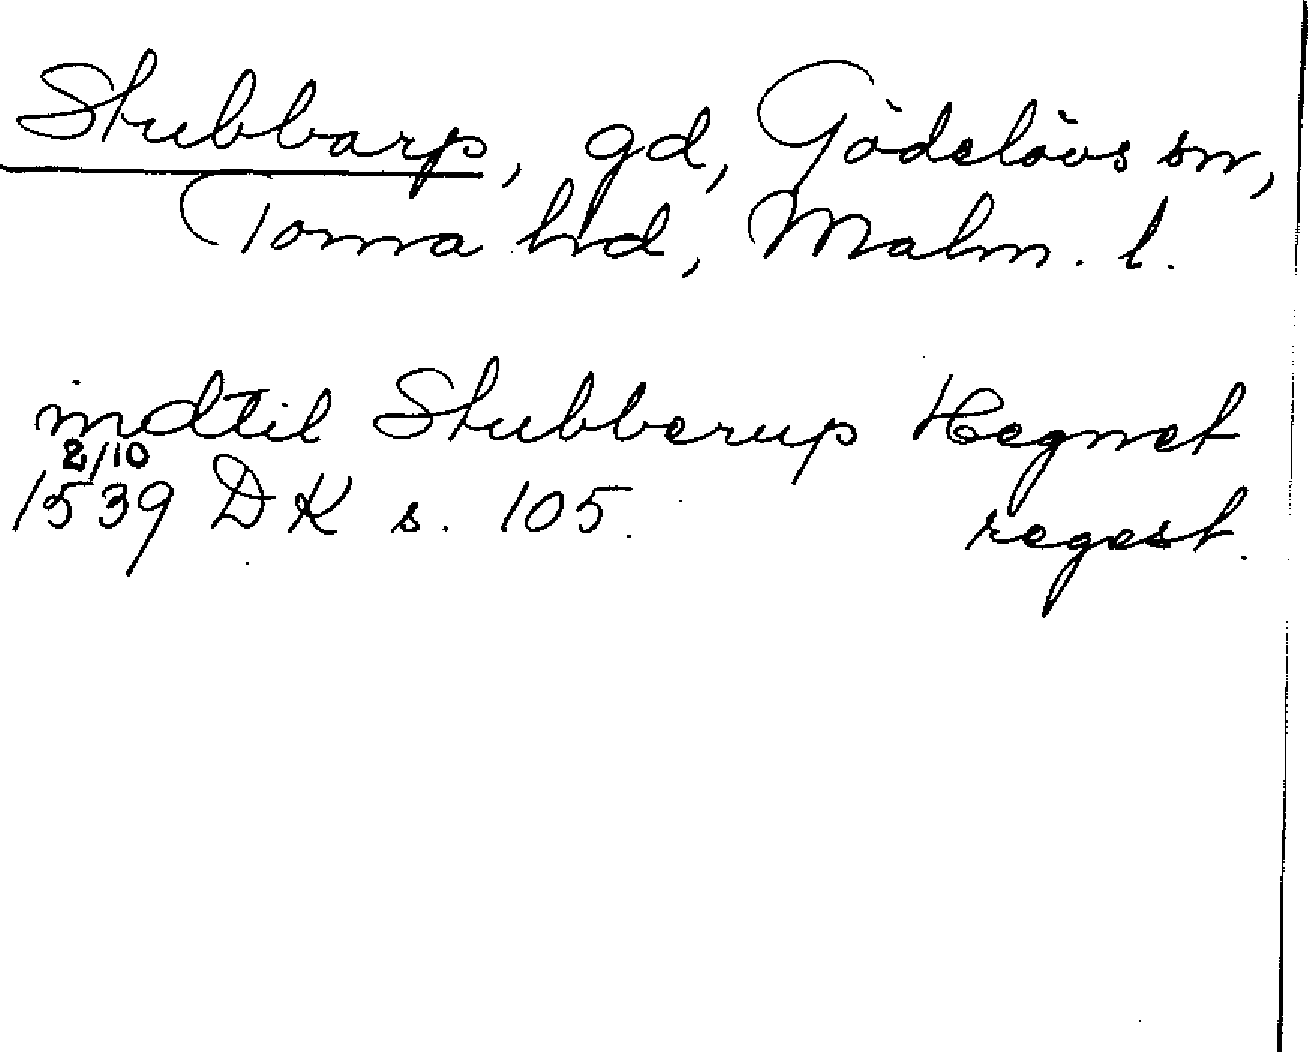 Stubbarp, gd, Gödelövs sn,
Torna hd, Malm. l.
indtil Stubberup Hegnet
2/10
1539 DK s. 105. regest.